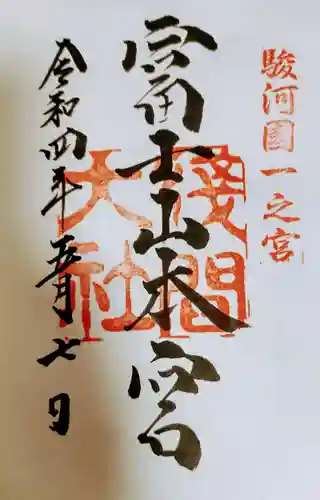 駿河國一之宮
富士山本宮
淺間大社
令和四年五月七日